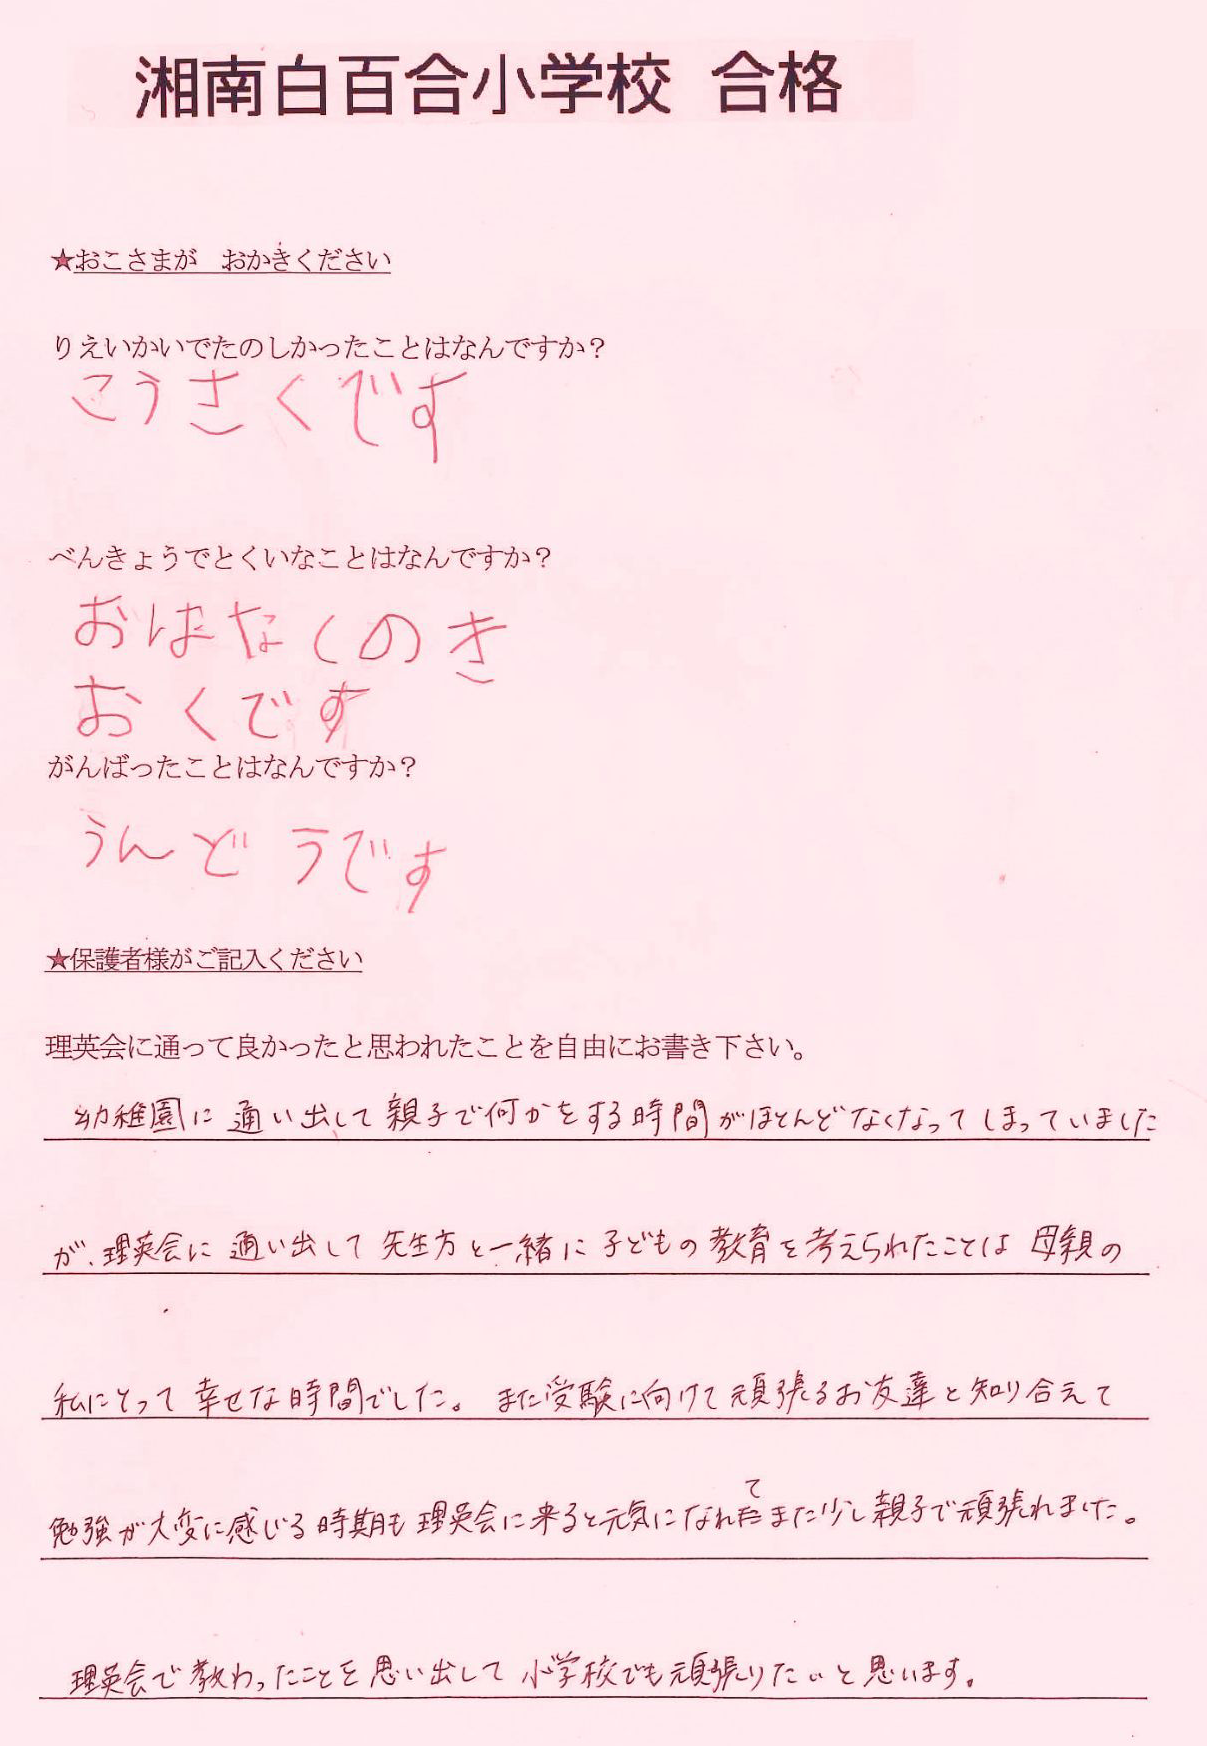 湘南白百合小学校 合格
★おこさまが おかきください
りえいかいでたのしかったことはなんですか？
こうさくです
べんきょうでとくいなことはなんですか？
おはなしのき
おくです
がんばったことはなんですか？
うんどうです
★保護者様がご記入ください
理英会に通って良かったと思われたことを自由にお書き下さい。
幼稚園に通い出して親子で何かをする時間がほとんどなくなってしまっていました
が、理英会に通い出して先生方と一緒に子どもの教育を考えられたことは母親の
私にとって幸せな時間でした。また受験に向けて頑張るお友達と知り合えて
勉強が大変に感じる時期も理英会に来ると元気になれてまた少し親子で頑張れました。
理英会で教わったことを思い出して小学校でも頑張りたいと思います。